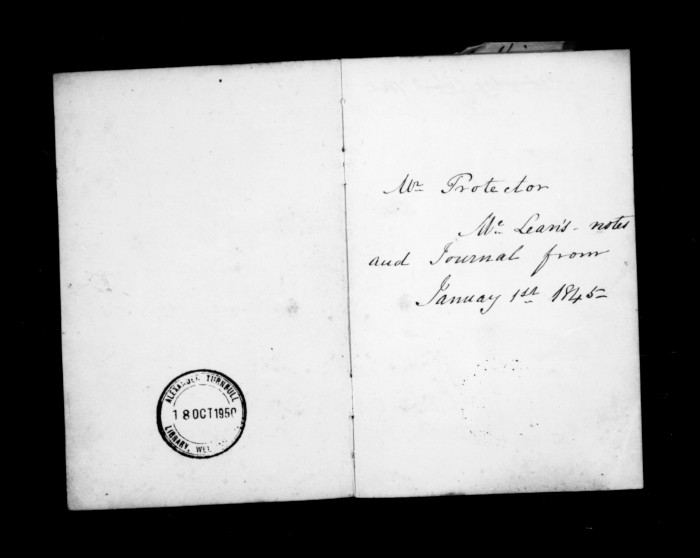 ALEXANDER TURNBULL
18 OCT 1950
LIBRARY, WEL
Mr Protector
Mc Lean's - notes
and Journal from
Januay 1st 1845